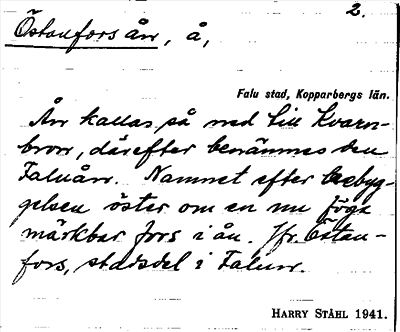 2.
Östanforsån, å,
Falu stad, Kopparbergs län.
Ån kallas så ned till Kvarn-
bron, därefter benämnes den
Faluån. Namnet efter bebyg-
gelsen öster om en nu föga
märkbar fors i ån. Jfr Östan-
fors, stadsdel i Falun.
HARRY STÅHL 1941.